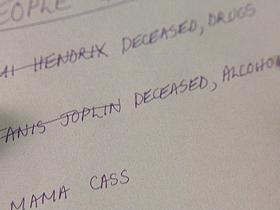 EOPLE
HENDRIX DECEASED, DRUGS
ANIS JOPLIN DECEASED, ALCOHO
MAMA CASS